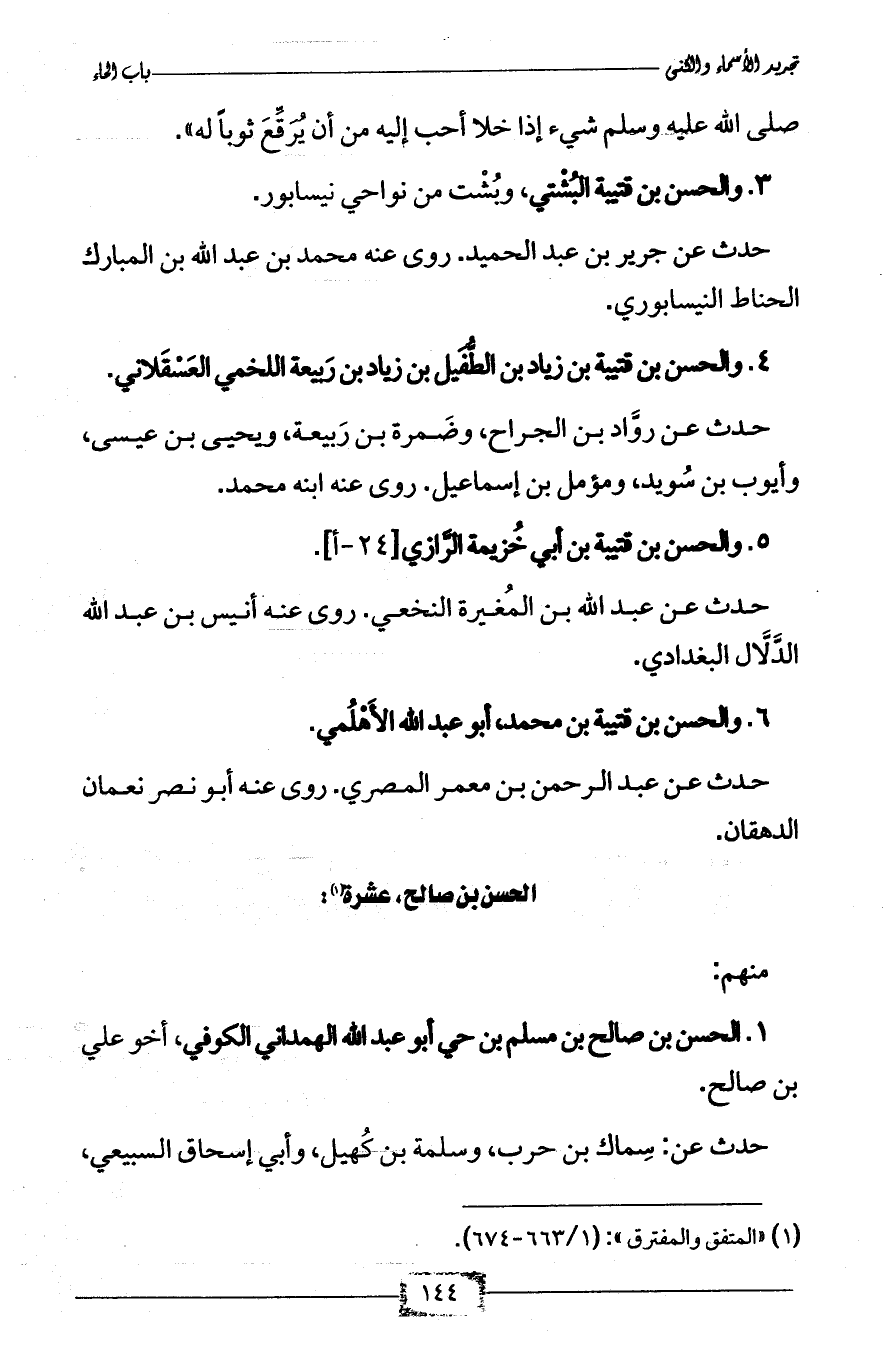 تجريد الأسماء والكنى
باب الحاء
صلى الله عليه وسلم شيء إذا خلا أحب إليه من أن يُرَقِّعَ ثوباً له».
٣. والحسن بن قتيبة البُشْتي، وبُشْت من نواحي نيسابور.
حدث عن جرير بن عبد الحميد. روى عنه محمد بن عبد الله بن المبارك
الحناط النيسابوري.
٤. والحسن بن قتيبة بن زياد بن الطُّفَيل بن زياد بن رَبيعة اللخمي العَسْقَلاني.
حدث عن روَّاد بن الجراح، وضَمرة بن رَبيعة، ويحيى بن عيسى،
وأيوب بن سُويد، ومؤمل بن إسماعيل. روى عنه ابنه محمد.
٥. والحسن بن قتيبة بن أبي خُزيمة الرَّازي [٢٤-أ].
حدث عن عبد الله بن المُغيرة النخعي. روى عنه أنيس بن عبد الله
الدَّلَّال البغدادي.
٦. والحسن بن قتيبة بن محمد، أبو عبد الله الأَهْلُمي.
حدث عن عبد الرحمن بن معمر المصري. روى عنه أبو نصر نعمان
الدهقان.
الحسن بن صالح، عشرة(١):
منهم:
١. الحسن بن صالح بن مسلم بن حي أبو عبد الله الهمداني الكوفي، أخو علي
بن صالح.
حدث عن: سِماك بن حرب، وسلمة بن كُهيل، وأبي إسحاق السبيعي،
(١) «المتفق والمفترق»: (١/ ٦٦٣-٦٧٤).
١٤٤